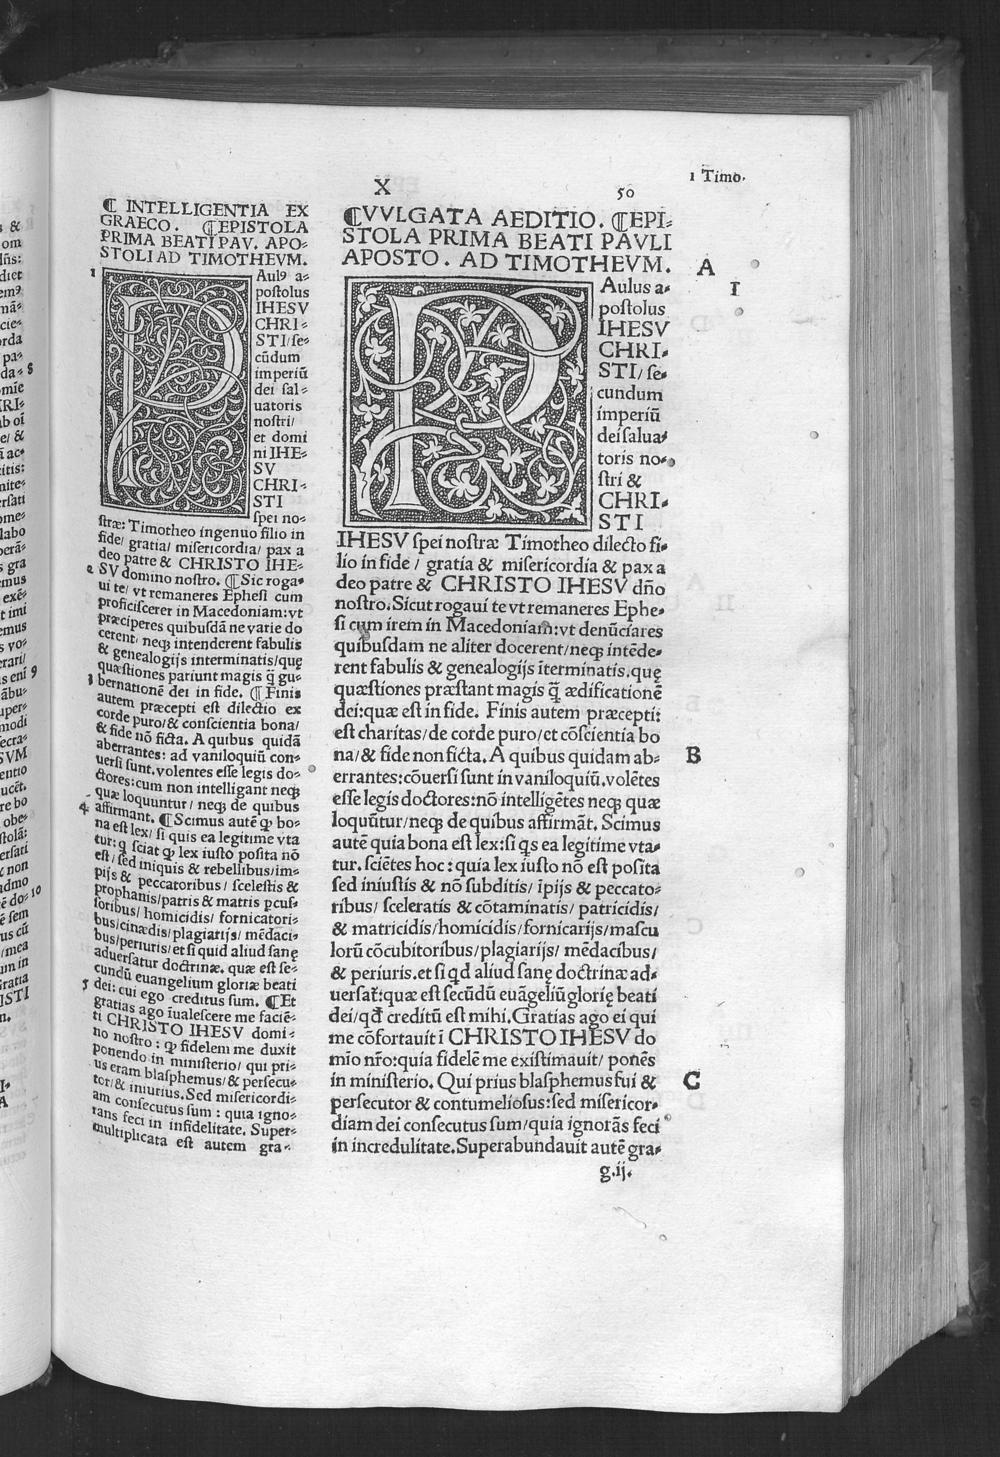 X
50
1 Timo.
¶ INTELLIGENTIA EX
GRAECO. ¶EPISTOLA
PRIMA BEATI PAV. APO⸗
STOLI AD TIMOTHEVM.
1
PAulꝰ a⸗
poſtolus
IHESV
CHRI⸗
STI/ſe⸗
cūdum
imperiū
dei ſal⸗
uatoris
noſtri/
et domi
ni IHE⸗
SV
CHRI⸗
STI
ſpei no⸗
ſtræ: Timotheo ingenuo filio in
fide/ gratia/ miſericordia/ pax a
deo patre & CHRISTO IHE⸗
2 SV domino noſtro. ¶Sic roga⸗
ui te/ vt remaneres Epheſi cum
proficiſcerer in Macedoniam:vt
præciperes quibuſdā ne varie do
cerent/ neqꝫ intenderent fabulis
& genealogijs interminatis/quę
quæſtiones pariunt magis q̄ gu⸗
3 bernationē dei in fide. ¶ Finis
autem præcepti eſt dilectio ex
corde puro/& conſcientia bona/
& fide nō ficta. A quibus quidā
aberrantes: ad vaniloquiū con⸗
uerſi ſunt.volentes eſſe legis do⸗
ctores:cum non intelligant neqꝫ
quæ loquuntur/ neqꝫ de quibus
4 affirmant. ¶Scimus autē ꝙ bo⸗
na eſt lex/ ſi quis ea legitime vta
tur:q ſciat ꝙ lex iuſto poſita nō
eſt/ſed iniquis & rebellibus/im⸗
pijs & peccatoribus/ ſceleſtis &
prophanis/patris & matris ꝑcuſ⸗
ſoribus/ homicidis/ fornicatori⸗
bus/cinædis/ plagiarijs/ mēdaci⸗
bus/periuris/et ſi quid aliud ſanę
aduerſatur doctrinæ. quæ eſt ſe⸗
cundū euangelium gloriæ beati
5 dei: cui ego creditus ſum. ¶Et
gratias ago īualeſcere me faciē⸗
ti CHRISTO IHESV domi⸗
no noſtro: ꝙ fidelem me duxit
ponendo in miniſterio/ qui pri⸗
us eram blaſphemus/& perſecu⸗
tor/& iniurius.Sed miſericordi⸗
am conſecutus ſum: quia igno⸗
rans feci in infidelitate. Super⸗
multiplicata eſt autem gra⸗
¶VVLGATA AEDITIO. ¶EPI⸗
STOLA PRIMA BEATI PAVLI
APOSTO. AD TIMOTHEVM. A
PAulus a⸗ I
poſtolus
IHESV
CHRI⸗
STI/ſe⸗
cundum
imperiū
dei ſalua⸗
toris no⸗
ſtri &
CHRI⸗
STI
IHESV ſpei noſtræ Timotheo dilecto fi⸗
lio in fide/ gratia & miſericordia & pax a
deo patre & CHRISTO IHESV dño
noſtro.Sicut rogaui te vt remaneres Ephe⸗
ſi cum irem in Macedoniam:vt denūciares
quibuſdam ne aliter docerent/neqꝫ intēde⸗
rent fabulis & genealogijs īterminatis.quę
quæſtiones præſtant magis q̄ ædificationē
dei:quæ eſt in fide. Finis autem præcepti:
eſt charitas/de corde puro/et cōſcientia bo
na/& fide non ficta. A quibus quidam ab⸗ B
errantes:cōuerſi ſunt in vaniloquiū.volētes
eſſe legis doctores:nō intelligētes neqꝫ quæ
loquūtur/neqꝫ de quibus affirmāt. Scimus
autē quia bona eſt lex:ſi qs ea legitime vta⸗
tur. ſciētes hoc: quia lex iuſto nō eſt poſita
ſed iniuſtis & nō ſubditis/ īpijs & peccato⸗
ribus/ ſceleratis & cōtaminatis/ patricidis/
& matricidis/homicidis/fornicarijs/maſcu
lorū cōcubitoribus/plagiarijs/ mēdacibus/
& periuris.et ſi qd aliud ſanę doctrinæ ad⸗
uerſat̃:quæ eſt ſecūdū euāgeliū glorię beati
dei/qđ creditū eſt mihi.Gratias ago ei qui
me cōfortauit ī CHRISTO IHESV do
mīo nr̃o:quia fidelē me exiſtimauit/ ponēs
in miniſterio. Qui prius blaſphemus fui & C
perſecutor & contumelioſus:ſed miſericor⸗
diam dei conſecutus ſum/quia ignorās feci
in incredulitate.Superabundauit autē gra⸗
g.ij.